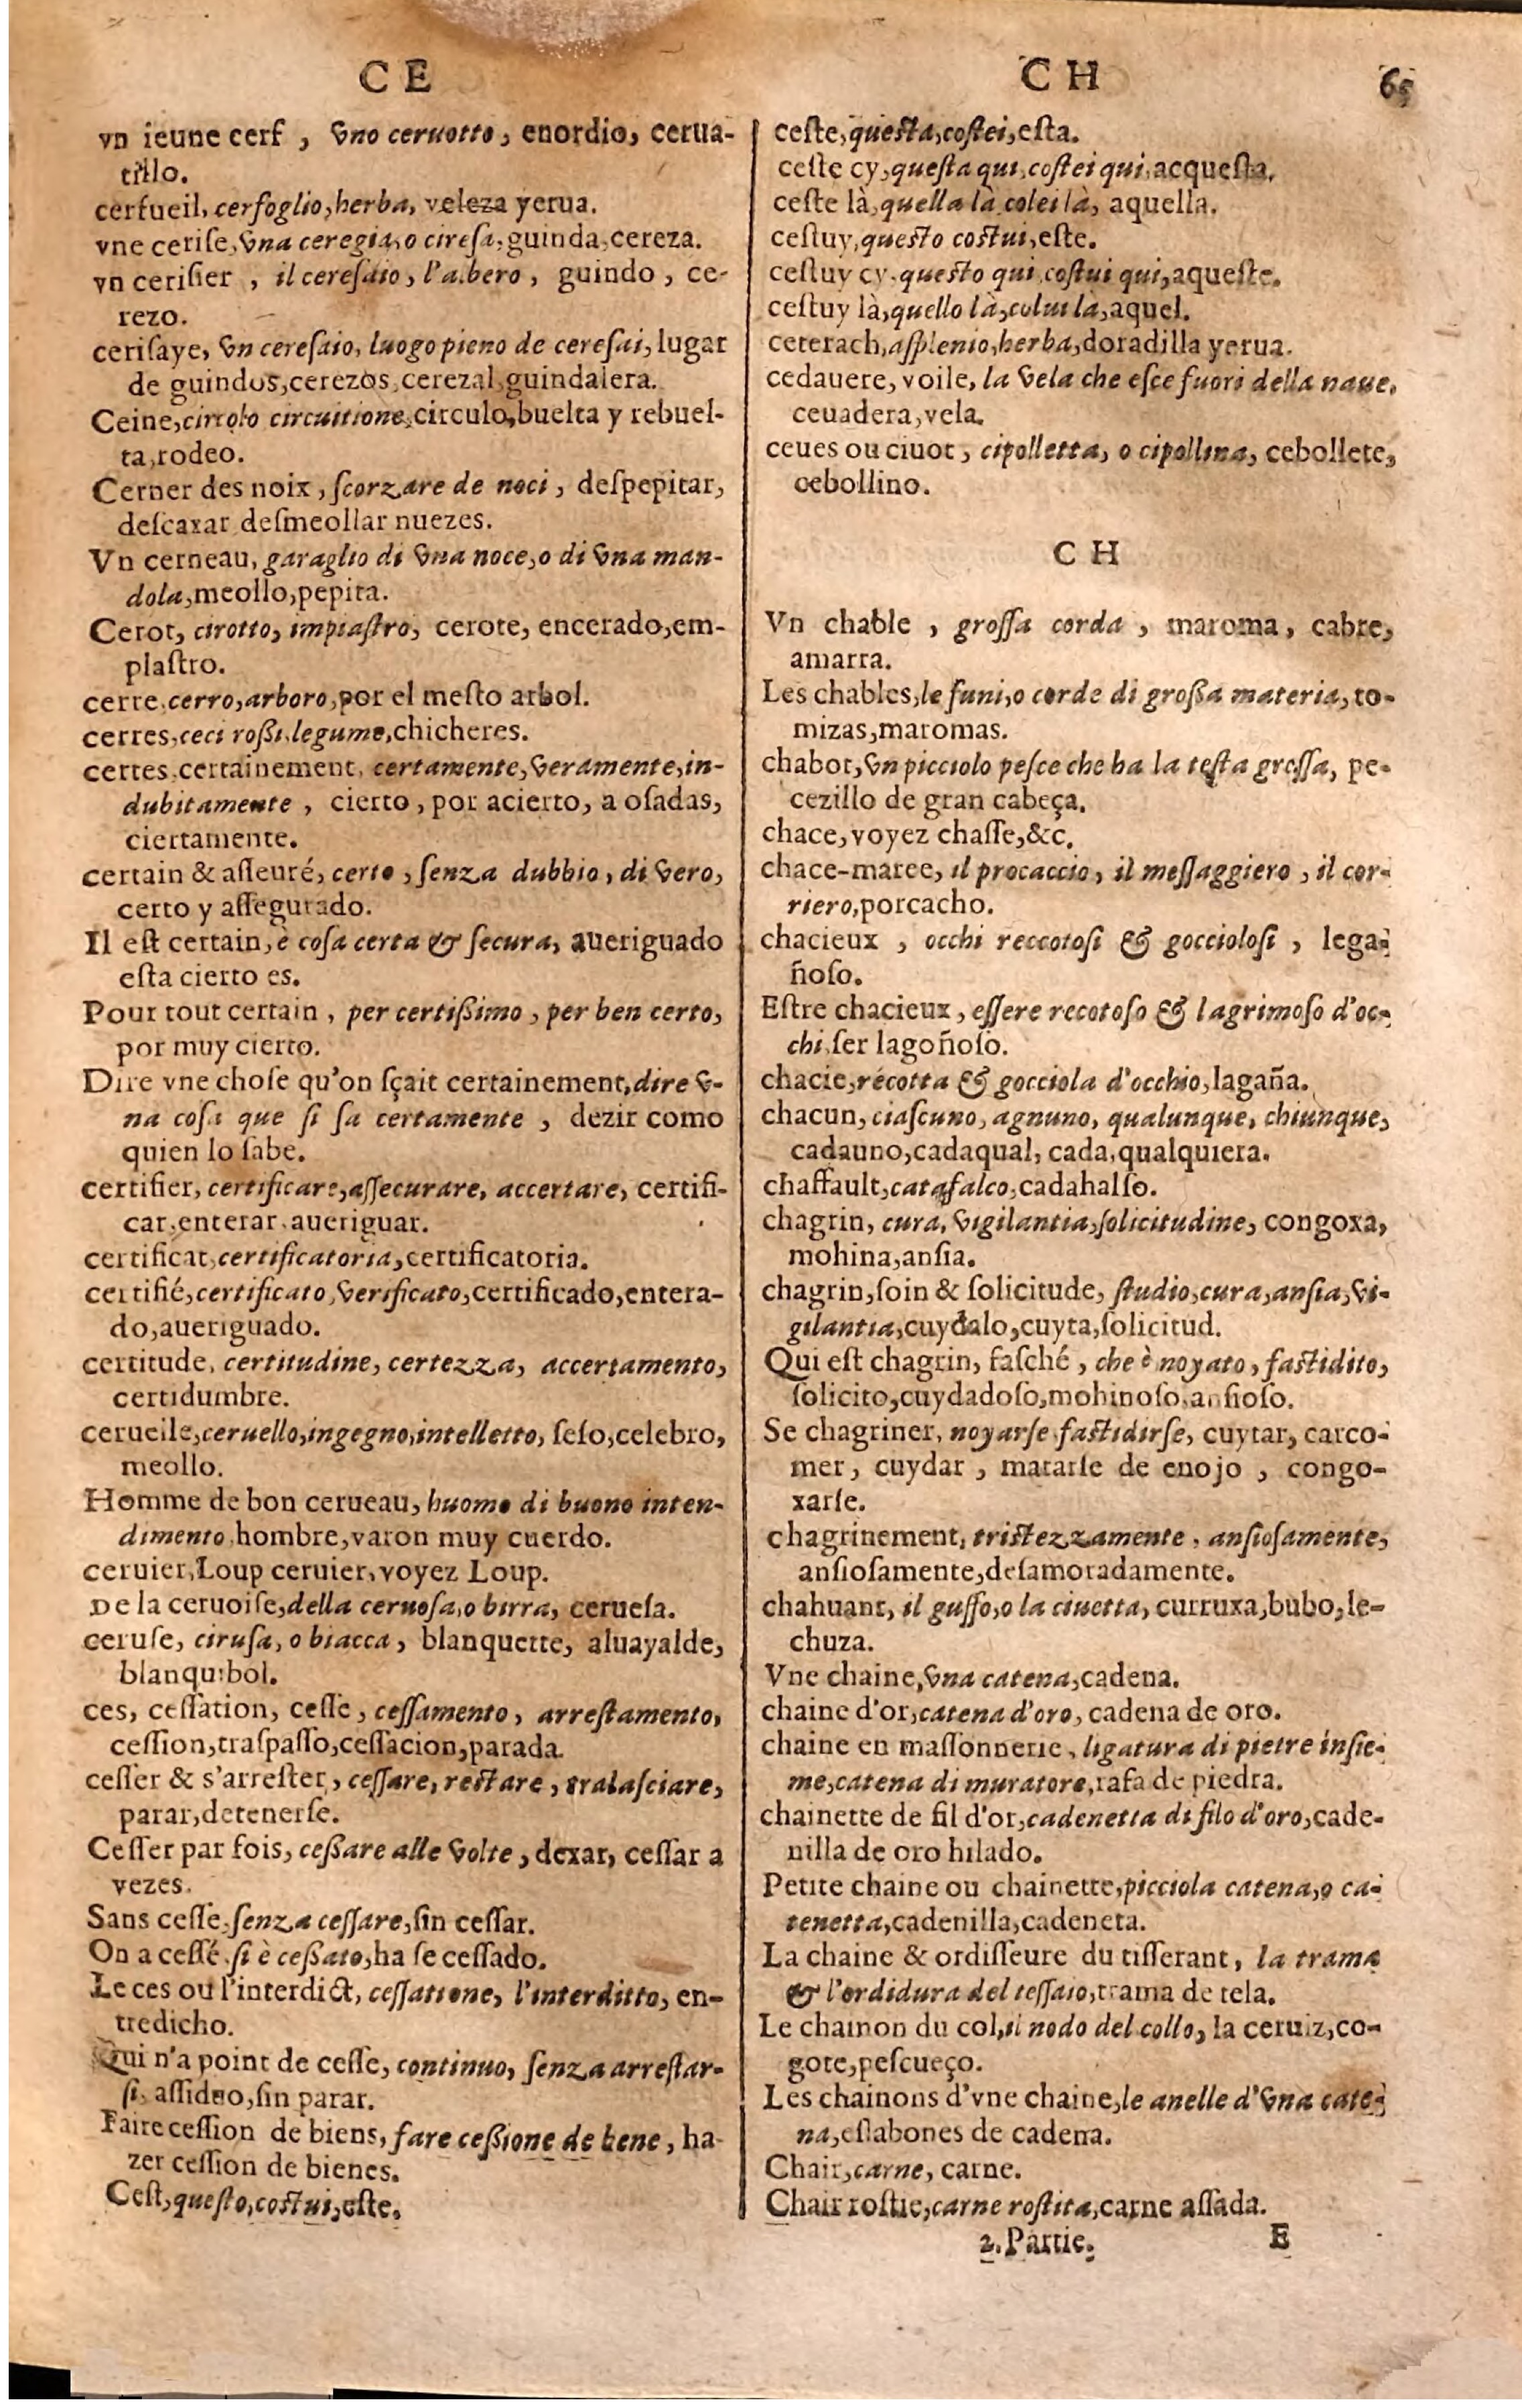 CE
CH
65
vn ieune cerf , vno ceruotto, enordio, cerua-
tillo.
cerfueil, cerfoglio, herba, veleza yerua.
vne ceriſe, vna ceregia, o cireſa, guinda, cereza.
vn ceriſier , il cereſaio, l'albero, guindo, ce-
rezo.
ceriſaye, vn cereſaio, luogo pieno de cereſai, lugar
de guindos, cerezos, cerezal, guindalera.
Ceine, circolo circuitione, circulo, buelta y rebuel-
ta, rodeo.
Cerner des noix, ſcorzare de noci, deſpepitar,
deſcaxar deſmeollar nuezes.
Vn cerneau, garaglio di vna noce, o di vna man-
dola, meollo, pepita.
Cerot, cirotto, impiaſtro, cerote, encerado, em-
plaſtro.
cerre, cerro, arboro, por el meſto arbol.
cerres, ceci roßi, legume, chicheres.
certes, certainement, certamente, veramente, in-
dubitamente, cierto, por acierto, a oſadas,
ciertamente.
certain & aſſeuré, certo, ſenza dubbio, di vero,
certo y aſſegurado.
Il eſt certain, è coſa certa & ſecura, aueriguado
eſta cierto es.
Pour tout certain, per certißimo, per ben certo,
por muy cierto.
Dire vne choſe qu'on ſçait certainement, dire v-
na coſa que ſi ſa certamente, dezir como
quien lo ſabe.
certifier, certificare, aſſecurare, accertare, certifi-
car, enterar, aueriguar.
certificat, certificatoria, certificatoria.
certifié, certificato, verificato, certificado, entera-
do, aueriguado.
certitude, certitudine, certezza, accertamento,
certidumbre.
ceruelle, ceruello, ingegno, intelletto, ſeſo, celebro,
meollo.
Homme de bon cerueau, huomo di buono inten-
dimento, hombre, varon muy cuerdo.
ceruier, Loup ceruier, voyez Loup.
De la ceruoiſe, della ceruoſa, o birra, cerueſa.
ceruſe, ciruſa, o biacca, blanquette, aluayalde,
blanquibol.
ces, ceſſation, ceſſe, ceſſamento, arreſtamento,
ceſſion, traſpaſſo, ceſſacion, parada.
ceſſer & s'arreſter, ceſſare, reſtare, tralaſciare,
parar, detenerſe.
Ceſſer par fois, ceßare alle volte, dexar, ceſſar a
vezes.
Sans ceſſe, ſenza ceſſare, ſin ceſſar.
On a ceſſé, ſi è ceßato, ha ſe ceſſado.
Le ces ou l'interdict, ceſſatione, l'interditto, en-
tredicho.
Qui n'a point de ceſſe, continuo, ſenza arreſtar-
ſi, aſſiduo, ſin parar.
Faire ceſſion de biens, fare ceßione de bene, ha-
zer ceſſion de bienes.
Ceſt, queſto, coſtui, eſte.
ceſte, queſta, coſtei, eſta.
ceſte cy, queſta qui, coſtei qui, acqueſta.
ceſte là, quella là, colei là, aquella.
ceſtuy, queſto coſtui, eſte.
ceſtuy cy, queſto qui, coſtui qui, aqueſte.
ceſtuy là, quello là, colui la, aquel.
ceterach, aſplenio, herba, doradilla yerua.
cedauere, voile, la vela che eſce fuori della naue,
ceuadera, vela.
ceues ou ciuot, cipolletta, o cipollina, cebollete,
cebollino.
CH
Vn chable , groſſa corda , maroma, cabre,
amarra.
Les chables, le funi, o corde di großa materia, to-
mizas, maromas.
chabot, vn picciolo peſce che ha la teſta groſſa, pe-
cezillo de gran cabeça.
chace, voyez chaſſe, &c.
chace-maree, il procaccio, il meſſaggiero, il cor-
riero, porcacho.
chacieux , occhi reccotoſi & goccioloſi , lega-
ñoſo.
Eſtre chacieux, eſſere recotoſo & lagrimoſo d'oc-
chi, ſer lagoñoſo.
chacie, récotta & gocciola d'occhio, lagaña.
chacun, ciaſcuno, agnuno, qualunque, chiunque,
cadauno, cadaqual, cada, qualquiera.
chaffault, catafalco, cadahalſo.
chagrin, cura, vigilantia, ſolicitudine, congoxa,
mohina, anſia.
chagrin, ſoin & ſolicitude, ſtudio, cura, anſia, vi-
gilantia, cuydalo, cuyta, ſolicitud.
Qui eſt chagrin, faſché, che è noyato, faſtidito,
ſolicito, cuydadoſo, mohinoſo, anſioſo.
Se chagriner, noyarſe, faſtidirſe, cuytar, carco-
mer, cuydar , matarſe de enojo , congo-
xarſe.
chagrinement, triſtezzamente, anſioſamente,
anſioſamente, deſamoradamente.
chahuant, il guffo, o la ciuetta, curruxa, bubo, le-
chuza.
Vne chaine, vna catena, cadena.
chaine d'or, catena d'oro, cadena de oro.
chaine en maſſonnerie, ligatura di pietre inſie-
me, catena di muratore, rafa de piedra.
chainette de fil d'or, cadenetta di filo d'oro, cade-
nilla de oro hilado.
Petite chaine ou chainette, picciola catena, o ca-
tenetta, cadenilla, cadeneta.
La chaine & ordiſſeure du tiſſerant, la trama
& l'ordidura del teſſaio, trama de tela.
Le chainon du col, il nodo del collo, la ceruiz, co-
gote, peſcueço.
Les chainons d'vne chaine, le anelle d'vna cate-
na, eſlabones de cadena.
Chair, carne, carne.
Chair roſtie, carne roſtita, carne aſſada.
2. Partie.
E